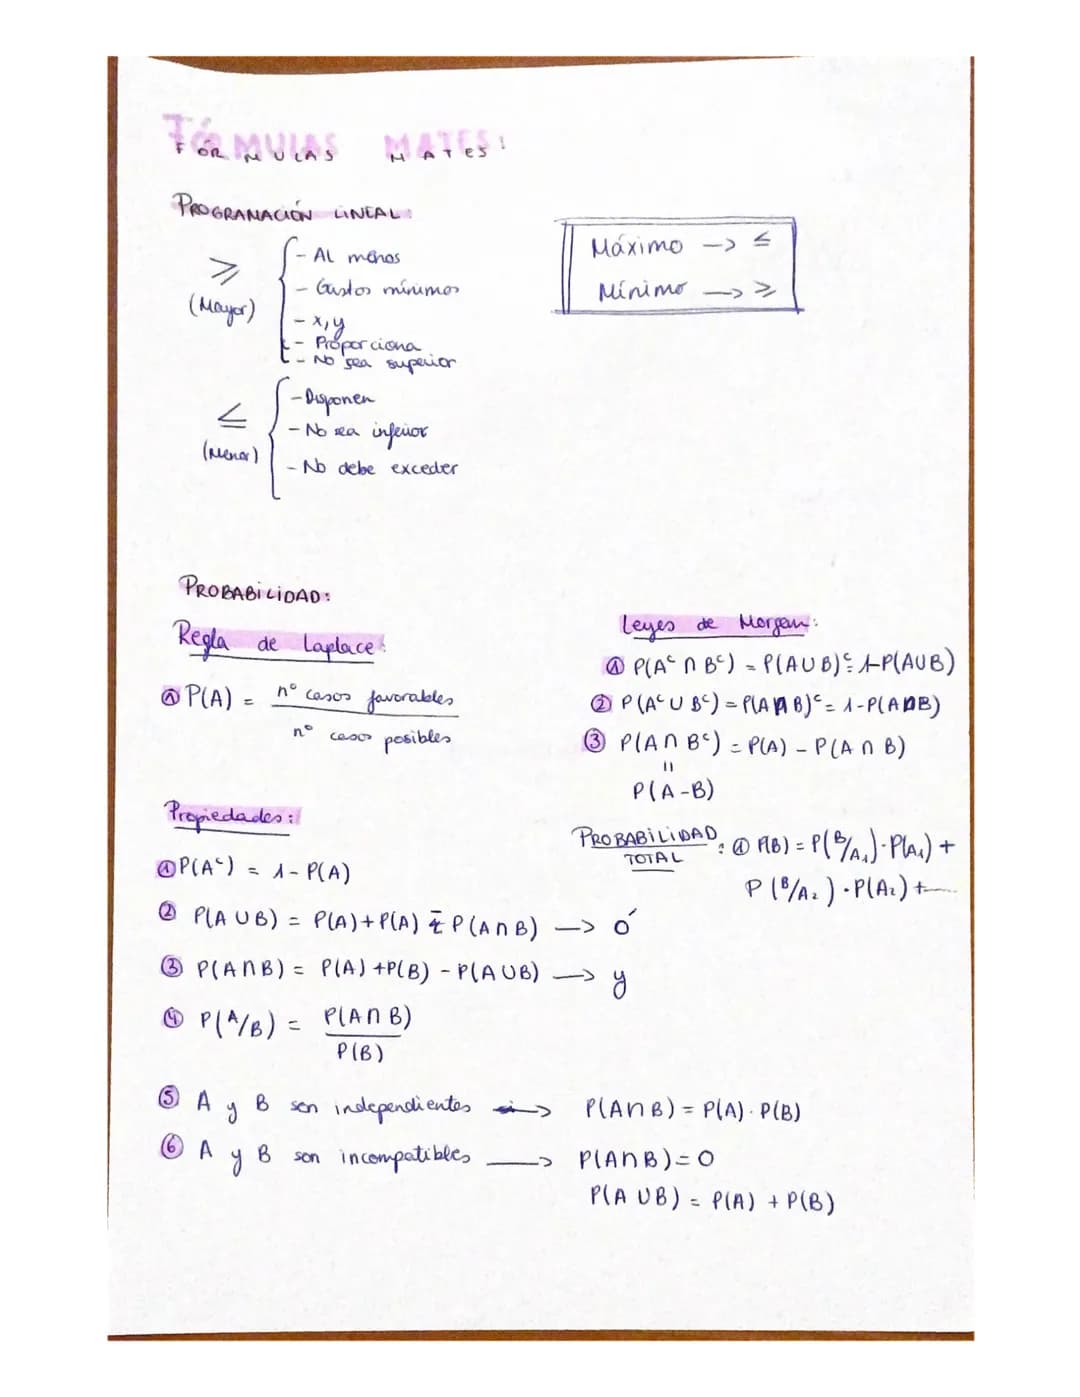 FÓRMULAS MATES:
PROGRAMACIÓN LINEAL:
≥ (Mayor)
- Al menos
- Gastos mínimos
- x, y
- Proporciona
- No sea superior
≤ (Menor)
- Disponen
- No sea inferior
- No debe exceder
Máximo -> ≤
Mínimo -> ≥
PROBABILIDAD:
Regla de Laplace:
① P(A) = nº casos favorables / nº casos posibles
Propiedades:
① P(Aᶜ) = 1 - P(A)
② P(A ∪ B) = P(A) + P(A) - P(A ∩ B) -> ó
③ P(A ∩ B) = P(A) + P(B) - P(A ∪ B) -> y
④ P(A/B) = P(A ∩ B) / P(B)
⑤ A y B son independientes -> P(A ∩ B) = P(A) · P(B)
⑥ A y B son incompatibles -> P(A ∩ B) = 0
P(A ∪ B) = P(A) + P(B)
Leyes de Morgan:
① P(Aᶜ ∩ Bᶜ) = P(A ∪ B)ᶜ = 1 - P(A ∪ B)
② P(Aᶜ ∪ Bᶜ) = P(A ∩ B)ᶜ = 1 - P(A ∩ B)
③ P(A ∩ Bᶜ) = P(A) - P(A ∩ B)
=
P(A - B)
PROBABILIDAD TOTAL: ① P(B) = P(B/A₁) · P(A₁) +
P(B/A₂) · P(A₂) + ....